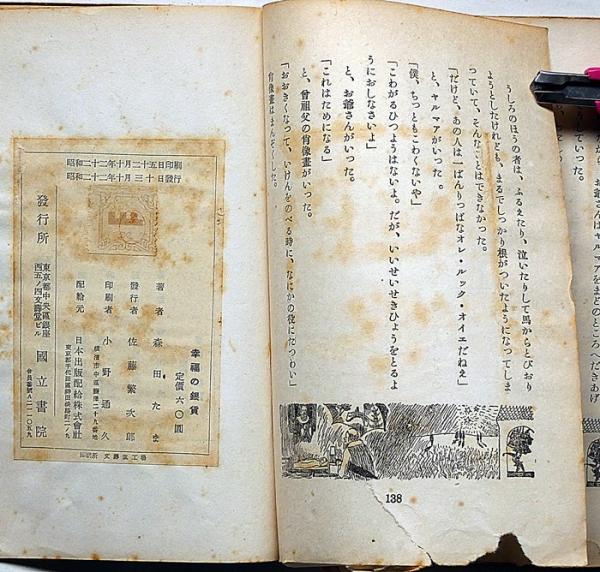 うしろのほうの者は、ふるえたり、泣いたりして馬からとびおり
ようとしたけれども、まるでしっかり根がついたようになってしま
っていて、そんなことはできなかった。
「だけど、あの人は「ばんりっぱなオレ・ルック・オイエだねえ」
と、ヤルマアがいった。
「僕、ちっともこわくないや」
「こわがるひつようはないよ。だが、いいせいせきひょうをとるよ
うにおしなさいよ」
と、お爺さんがいった。
「これはためになる」
と、曾祖父の肖像畫がいった。
「おおきくなって、いけんをのべる時に、なにかの役にたつわい」
肖像畫はまんぞくした。
138
昭和二十二年十月二十五日印刷
昭和二十二年十月三十日發行
幸福の銀貨
定價六〇圓
著者 森田たま
發行者 佐藤繁次郎
印刷者 小野通久
配給元 日本出版配給株式會社
發行所
東京都中央區銀座
西五ノ四文壽堂ビル
國立書院
會員番號A二一一〇五九